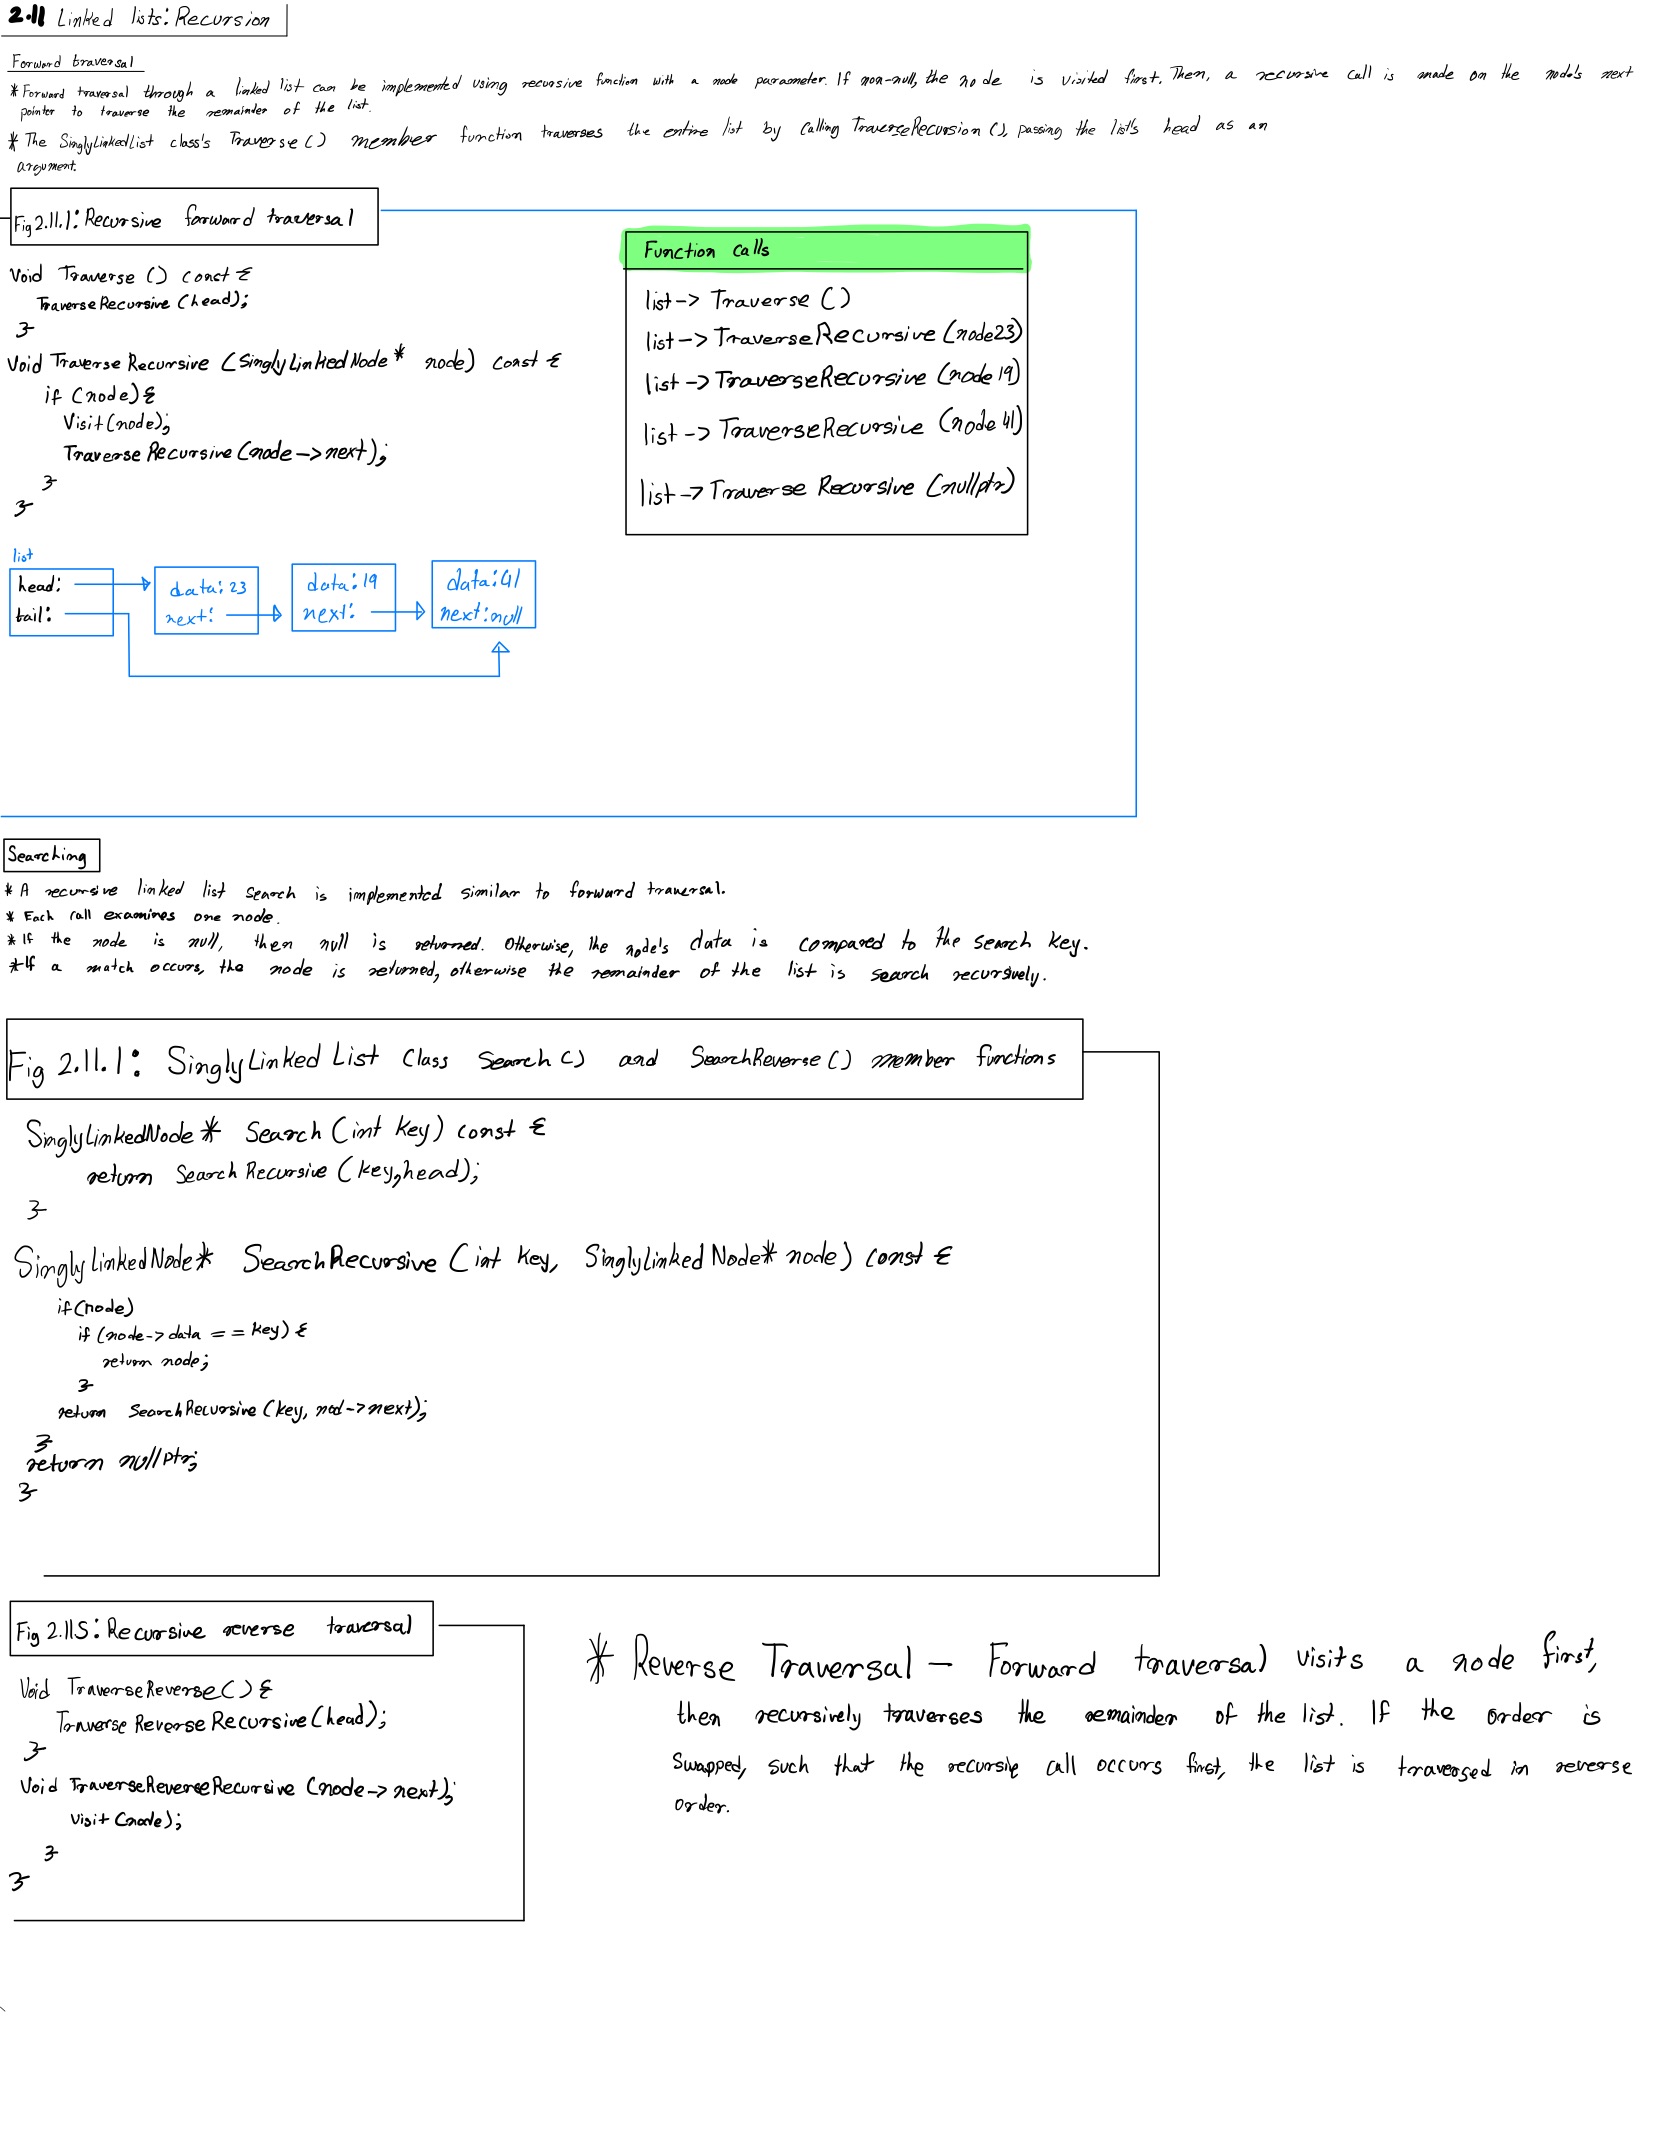 2.11 Linked lists: Recursion
Forward traversal
* Forward traversal through a linked list can be implemented using recursive function with a node parameter. If non-null, the node is visited first. Then, a recursive call is made on the node's next
pointer to traverse the remainder of the list.
* The SinglyLinkedList class's Traverse() member function traverses the entire list by calling TraverseRecursion(), passing the list's head as an
argument.
Fig 2.11.1: Recursive forward traversal
Void Traverse () const {
TraverseRecursive (head);
}
Void TraverseRecursive (SinglyLinkedNode* node) const {
if (node) {
Visit(node);
TraverseRecursive (node->next);
}
}
Function calls
list-> Traverse ()
list-> TraverseRecursive (node23)
list -> TraverseRecursive (node 19)
list -> TraverseRecursive (node 41)
list -> Traverse Recursive (nullptr)
list
head:
tail:
data: 23
next:
data: 19
next:
data: 41
next: null
Searching
* A recursive linked list search is implemented similar to forward traversal.
* Each call examines one node.
* If the node is null, then null is returned. Otherwise, the node's data is compared to the search key.
* If a match occurs, the node is returned, otherwise the remainder of the list is search recursively.
Fig 2.11.1: SinglyLinked List Class Search () and SearchReverse () member functions
SinglyLinkedNode* Search (int key) const {
return SearchRecursive (key, head);
}
SinglyLinkedNode* SearchRecursive (int key, SinglyLinkedNode* node) const {
if (node)
if (node-> data == key) {
return node;
}
return SearchRecursive (key, nod->next);
}
return nullptr;
}
Fig 2.11S: Recursive reverse traversal
Void TraverseReverse () {
TraverseReverseRecursive (head);
}
Void TraverseReverseRecursive (node-> next);
visit (node);
}
}
* Reverse Traversal - Forward traversal visits a node first,
then recursively traverses the remainder of the list. If the order is
swapped, such that the recursive call occurs first, the list is traversed in reverse
order.